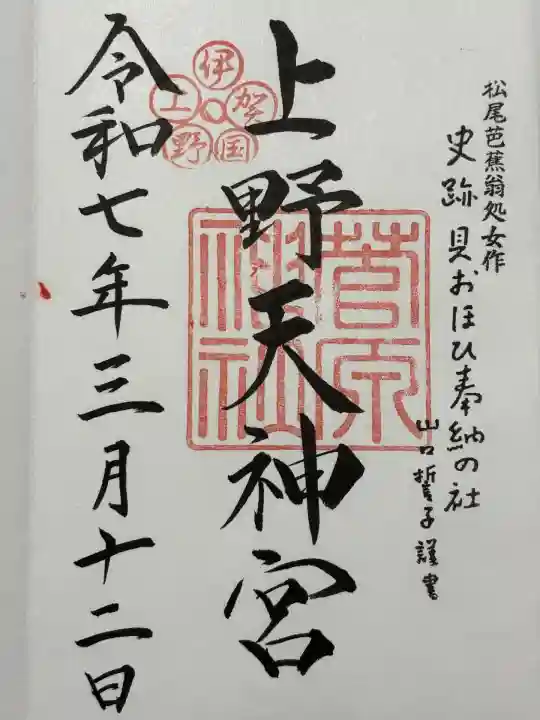 松尾芭蕉翁処女作
史跡 貝おほひ奉納の社
山口誓子謹書
上野天神宮
伊賀国上野
菅原神社
令和七年三月十二日